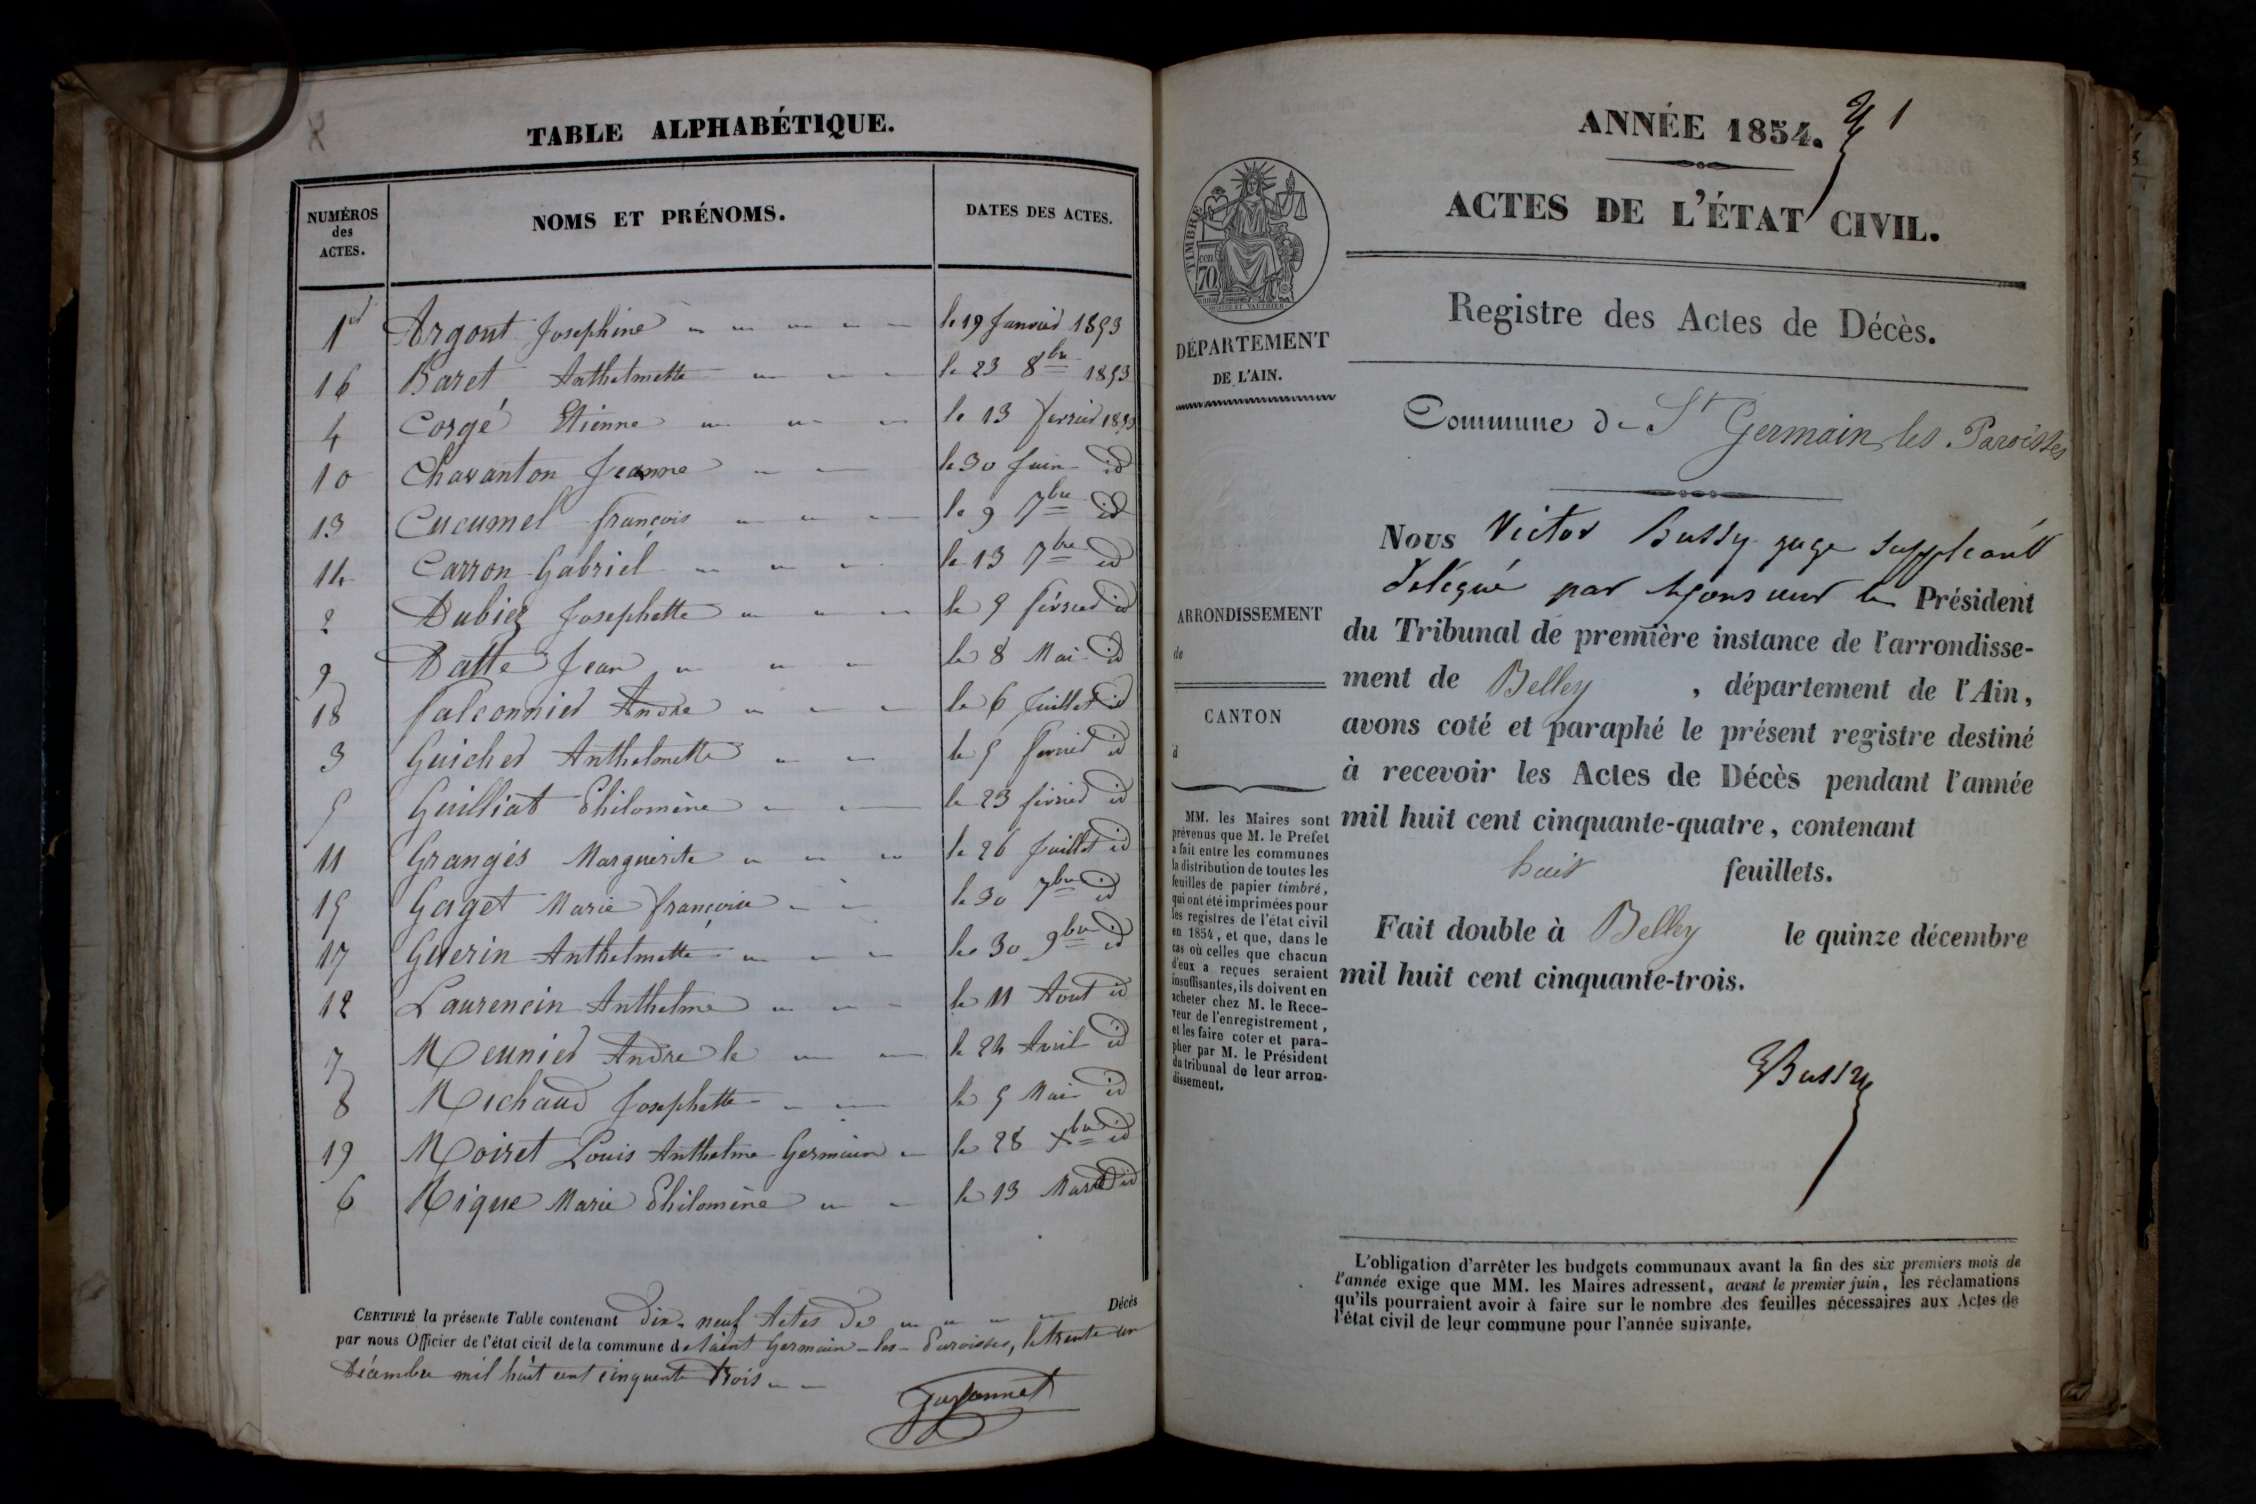 TABLE ALPHABÉTIQUE.
NUMÉROS des ACTES. NOMS ET PRÉNOMS. DATES DES ACTES.
1er Argout Josephine le 19 Janvier 1853
16 Baret Anthelmette le 23 8bre 1853
4 Corgé Etienne le 13 fevrier 1853
10 Chavanton Jeanne le 30 Juin id
13 Cucumel françois le 9 7bre id
14 Carron Gabriel le 13 7bre id
2 Dubiez Josephette le 5 février id
9 Datte Jean le 8 Mai id
18 falconnier Andre le 6 Juillet id
3 Guicher Anthelmette le 5 fevrier id
5 Guilliat Philomène le 23 février id
11 Grangés Marguerite le 26 Juillet id
15 Gaget Marie françoise le 30 7bre id
17 Guerin Anthelmette le 30 9bre id
12 Laurencin Anthelme le 11 Aout id
7 Meunier Andre le le 24 Avril id
8 Michaud Josephette le 5 Mai id
19 Moiret Louis Anthelme Germain le 28 Xbre id
6 Marie Philomène le 13 Mars id
CERTIFIÉ la présente Table contenant dix-neuf Actes de Décès
par nous Officier de l'état civil de la commune de Saint Germain-les-Paroisses, le trente un
Décembre mil huit cent cinquante trois
ANNÉE 1854. 1
ACTES DE L'ÉTAT CIVIL.
Registre des Actes de Décès.
TIMBRE
70
DÉPARTEMENT
DE L'AIN.
ARRONDISSEMENT
de
CANTON
d
MM. les Maires sont
prévenus que M. le Préfet
a fait entre les communes
la distribution de toutes les
feuilles de papier timbré,
qui ont été imprimées pour
les registres de l'état civil
en 1854, et que, dans le
cas où celles que chacun
d'eux a reçues seraient
insuffisantes, ils doivent en
acheter chez M. le Rece-
veur de l'enregistrement,
et les faire coter et para-
pher par M. le Président
du tribunal de leur arron-
dissement.
Commune de St Germain les Paroisses
Nous Victor Bussy juge suppléant
délégué par Monsieur le Président
du Tribunal de première instance de l'arrondisse-
ment de Belley , département de l'Ain,
avons coté et paraphé le présent registre destiné
à recevoir les Actes de Décès pendant l'année
mil huit cent cinquante-quatre, contenant
huit feuillets.
Fait double à Belley le quinze décembre
mil huit cent cinquante-trois.
Bussy
L'obligation d'arrêter les budgets communaux avant la fin des six premiers mois de
l'année exige que MM. les Maires adressent, avant le premier juin, les réclamations
qu'ils pourraient avoir à faire sur le nombre des feuilles nécessaires aux Actes de
l'état civil de leur commune pour l'année suivante.